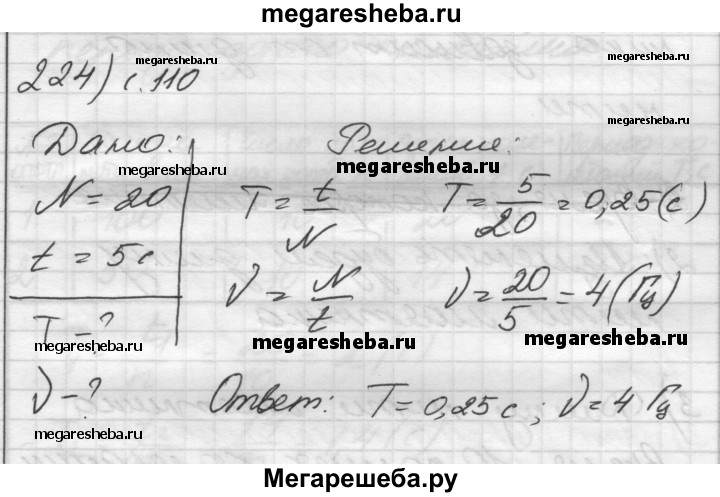 megaresheba.ru
224) с.110
megaresheba.ru
megaresheba.ru
Дано:
Решение:
megaresheba.ru
megaresheba.ru
N = 20
T = t/N
T = 5/20 = 0,25(с)
t = 5с
ν = N/t
ν = 20/5 = 4(Гц)
T - ?
megaresheba.ru
megaresheba.ru
ν - ?
Ответ: T = 0,25с; ν = 4 Гц
megaresheba.ru
Мегарешеба.ру